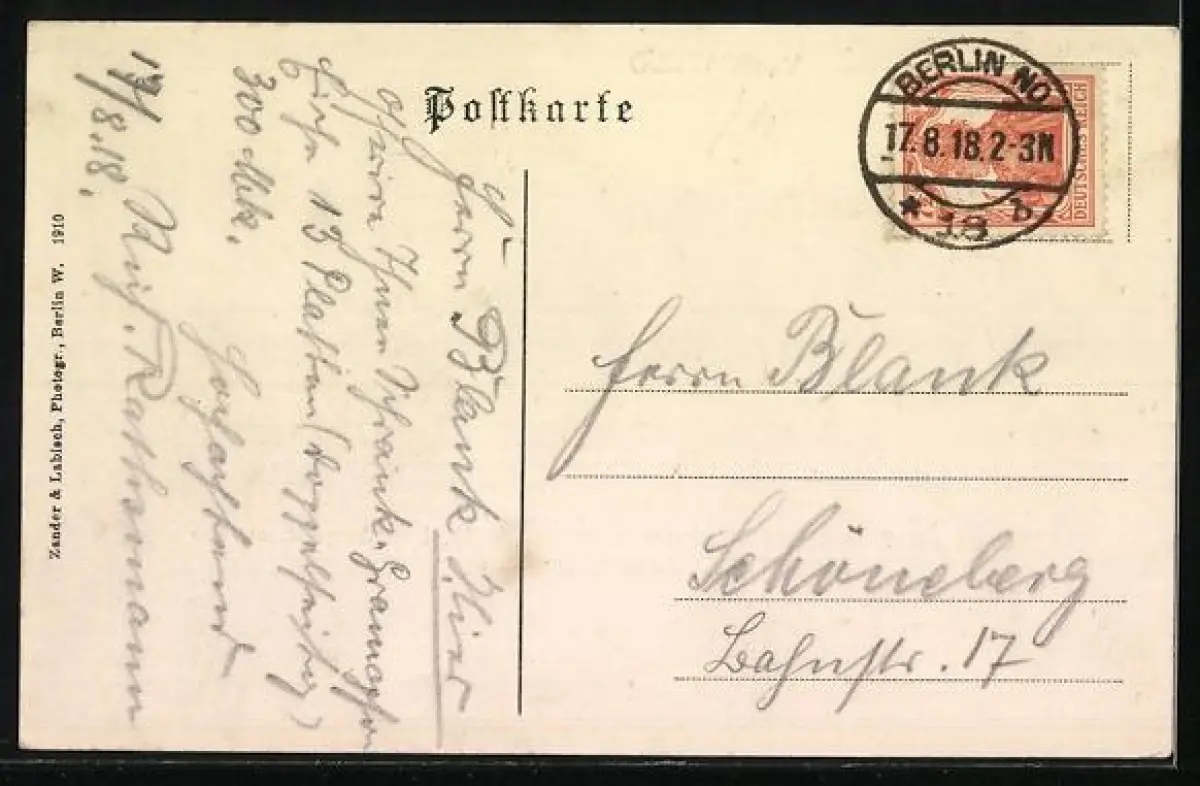 Postkarte
BERLIN NO
17.8.18.2-3N
* 18 b
DEUTSCHES REICH
Herrn Blank
Schöneberg
Bahnstr. 17
Herrn Blank Hier
Offerire Ihnen Schrank-Grammophon
Eiche 13 Platten (doppelseitig)
300 Mk.
Hochachtend
Rathmann
17/8.18.
Zander & Labisch, Photogr., Berlin W. 1910